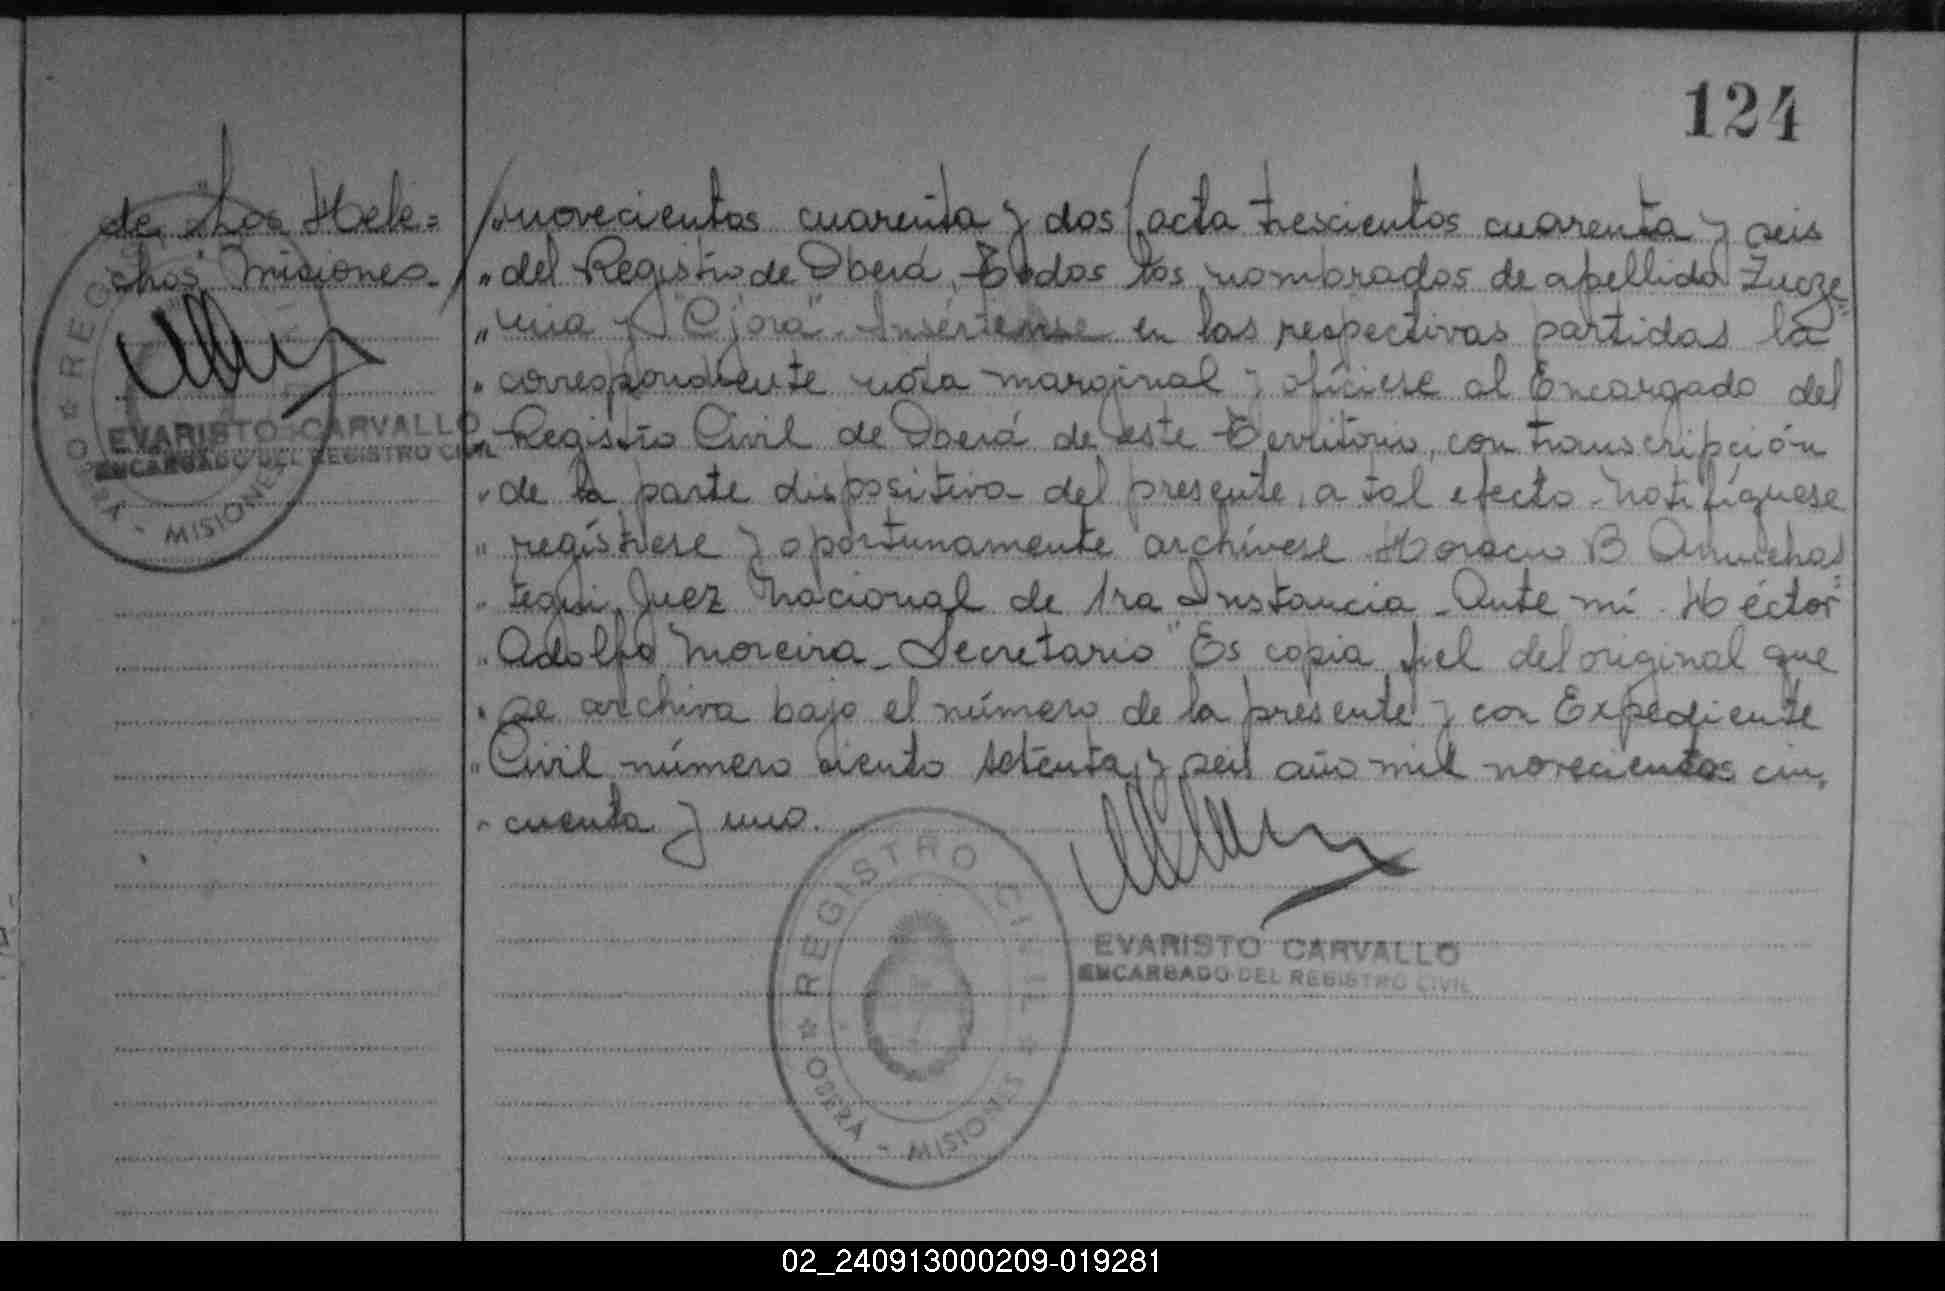 124
de "Los Hele=
chos" Misiones.
novecientos cuarenta y dos (acta trescientos cuarenta y seis
" del Registro de Oberá. Todos los nombrados de apellido
" y "Cjora". Insértense en las respectivas partidas la
" correspondiente nota marginal y ofíciese al Encargado del
" Registro Civil de Oberá de este Territorio, con transcripción
" de la parte dispositiva del presente, a tal efecto. Notifíquese
" regístrese y oportunamente archívese. Horacio B. Anuchas
" tegui, Juez Nacional de 1ra Instancia. Ante mí. Héctor
" Adolfo Moreira. Secretario" Es copia fiel del original que
" se archiva bajo el número de la presente y con Expediente
" Civil número ciento setenta y seis año mil novecientos cin,
" cuenta y uno.
EVARISTO CARVALLO
ENCARGADO DEL REGISTRO CIVIL
REGISTRO CIVIL
OBERA - MISIONES
EVARISTO CARVALLO
ENCARGADO DEL REGISTRO CIVIL
REG
OBERA - MISIONES
02_240913000209-019281